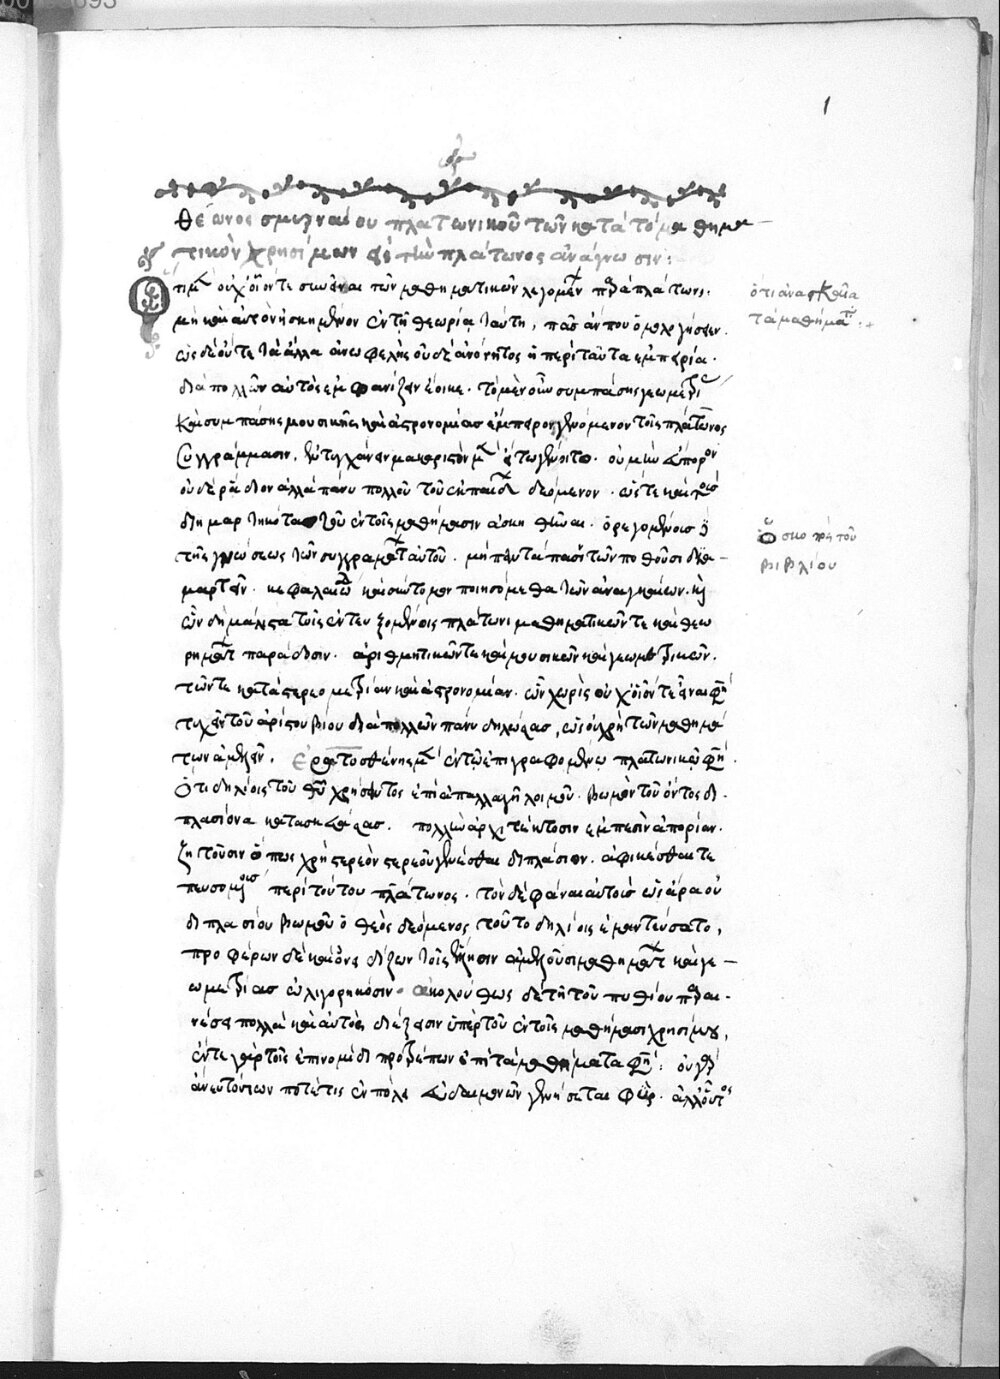 1
Θέωνος σμυρναίου πλατωνικοῦ τῶν κατὰ τὸ μαθημα
τικὸν χρησίμων εἰς τὴν πλάτωνος ἀνάγνωσιν:
Ὅτι μὲν οὐχ᾽ οἷόν τε συνεῖναι τῶν μαθηματικῶν λεγομένων παρὰ πλάτωνι.
ὅτι ἀνασκ
τὰ μαθήματα:
μὴ καὶ αὐτὸν ἠσκημένον ἐν τῇ θεωρίᾳ ταύτῃ, πᾶς ἄν που ὁμολογήσειεν.
ὡς δὲ οὐδὲ τὰ ἄλλα ἀνωφελὴς οὐδὲ ἀνόνητος ἡ περὶ ταῦτα ἐμπειρία.
διὰ πολλῶν αὐτὸς ἐμφανίζειν ἔοικε. τὸ μὲν οὖν συμπάσης γεωμετρί
καὶ συμπάσης μουσικῆς καὶ ἀστρονομίας ἔμπειρον γενόμενον τοῖς πλάτωνος
συγγράμμασιν ἐντυγχάνειν μακαριστὸν μὲν εἴ τῳ γένοιτο. οὐ μὴν εὔπορον
οὐδὲ ῥᾴδιον ἀλλὰ πάνυ πολλοῦ τοῦ ἐκ παίδων δεόμενον. ὥστε καὶ τοὺς
διημαρτηκότας τοῦ ἐν τοῖς μαθήμασιν ἀσκηθῆναι. ὀρεγομένους δὲ
ὁ σκοπὸς τοῦ
βιβλίου
τῆς γνώσεως τῶν συγγραμμάτων αὐτοῦ. μὴ παντάπασιν ὧν ποθοῦσι δια
μαρτεῖν. κεφαλαιώδη καὶ σύντομον ποιησόμεθα τῶν ἀναγκαίων καὶ
ὧν δεῖ μάλιστα τοῖς ἐντευξομένοις πλάτωνι μαθηματικῶν τε καὶ θεω
ρημάτων παράδοσιν. ἀριθμητικῶν τε καὶ μουσικῶν καὶ γεωμετρικῶν.
τῶν τε κατὰ στερεομετρίαν καὶ ἀστρονομίαν. ὧν χωρὶς οὐχ᾽ οἷόν τε εἶναι φησὶ
τυχεῖν τοῦ ἀρίστου βίου διὰ πολλῶν πάνυ δηλώσας, ὡς οὐ χρὴ τῶν μαθημά
των ἀμελεῖν. Ἐρατοσθένης μὲν ἐν τῷ ἐπιγραφομένῳ πλατωνικῷ φησὶν.
Ὅτι δηλίοις τοῦ θεοῦ χρήσαντος ἐπὶ ἀπαλλαγῇ λοιμοῦ. βωμὸν τοῦ ὄντος δι
πλασίονα κατασκευάσαι. πολλὴν ἀρχιτέκτοσιν ἐμπεσεῖν ἀπορίαν.
ζητοῦσιν ὅπως χρὴ στερεὸν στερεοῦ γενέσθαι διπλάσιον. ἀφικέσθαι τε
πευσομένους περὶ τούτου πλάτωνος. τὸν δὲ φάναι αὐτοῖς ὡς ἄρα οὐ
διπλασίου βωμοῦ ὁ θεὸς δεόμενος τοῦτο δηλίοις ἐμαντεύσατο,
προφέρων δὲ καὶ ὀνειδίζων τοῖς ἕλλησιν ἀμελοῦσι μαθημάτων καὶ γε
ωμετρίας ὠλιγωρηκόσιν. ἀκολούθως δὲ τῇ τοῦ πυθίου παραι
νέσει πολλὰ καὶ αὐτὸς διέξεισιν ὑπὲρ τοῦ ἐν τοῖς μαθήμασι χρησίμου,
ἔν τε γὰρ τοῖς ἐπινομίδι προτρέπων ἐπὶ τὰ μαθήματα φησὶ: οὐ γὰρ
ἄνευ τούτων ποτέ τις ἐν πόλει εὐδαιμόνων γενήσεται φύσις. ἀλλ᾽ οὗτος